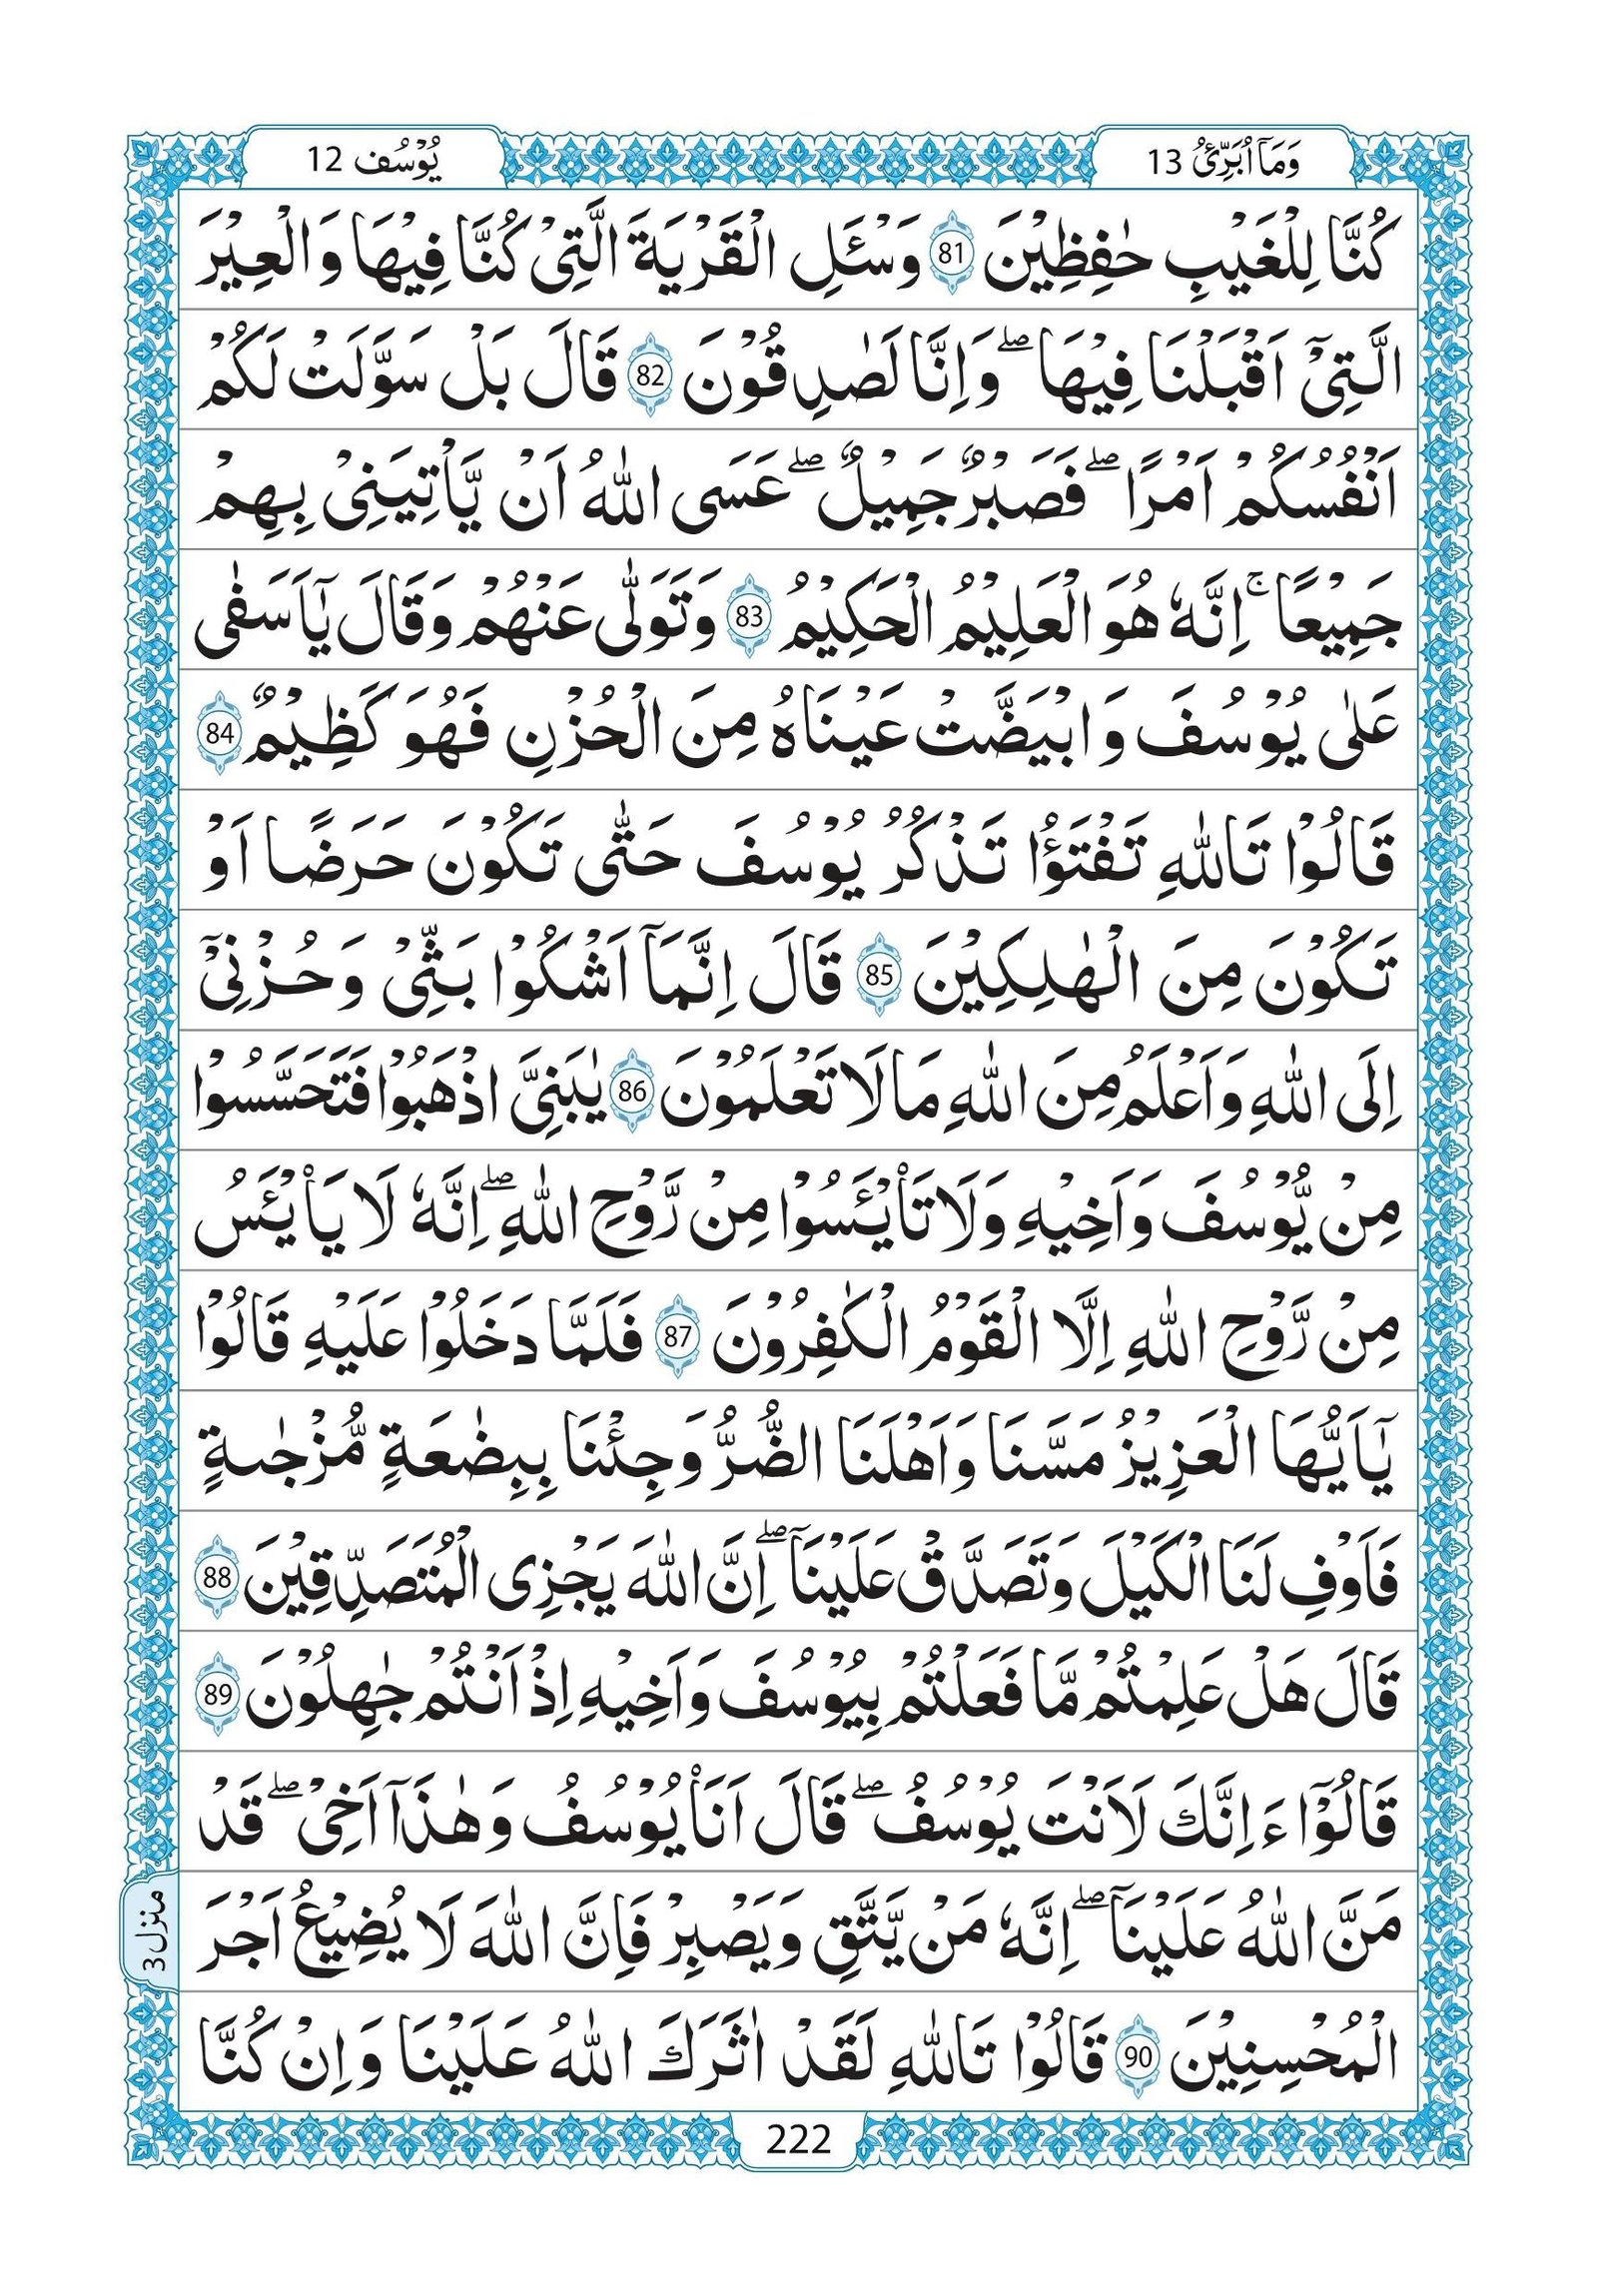 وَمَآ اُبَرِّئُ 13
يُوْسُف 12
كُنَّا لِلْغَيْبِ حٰفِظِيْنَ 81 وَسْـَٔلِ الْقَرْيَةَ الَّتِىْ كُنَّا فِيْهَا وَالْعِيْرَ
الَّتِىْٓ اَقْبَلْنَا فِيْهَا ۖ وَاِنَّا لَصٰدِقُوْنَ 82 قَالَ بَلْ سَوَّلَتْ لَكُمْ
اَنْفُسُكُمْ اَمْرًا ۖ فَصَبْرٌ جَمِيْلٌ ۖ عَسَى اللّٰهُ اَنْ يَّاْتِيَنِىْ بِهِمْ
جَمِيْعًا ۚ اِنَّهٗ هُوَ الْعَلِيْمُ الْحَكِيْمُ 83 وَتَوَلّٰى عَنْهُمْ وَقَالَ يٰٓاَسَفٰى
عَلٰى يُوْسُفَ وَابْيَضَّتْ عَيْنَاهُ مِنَ الْحُزْنِ فَهُوَ كَظِيْمٌ 84
قَالُوْا تَاللّٰهِ تَفْتَؤُا تَذْكُرُ يُوْسُفَ حَتّٰى تَكُوْنَ حَرَضًا اَوْ
تَكُوْنَ مِنَ الْهٰلِكِيْنَ 85 قَالَ اِنَّمَآ اَشْكُوْا بَثِّىْ وَحُزْنِىْٓ
اِلَى اللّٰهِ وَاَعْلَمُ مِنَ اللّٰهِ مَا لَا تَعْلَمُوْنَ 86 يٰبَنِىَّ اذْهَبُوْا فَتَحَسَّسُوْا
مِنْ يُّوْسُفَ وَاَخِيْهِ وَلَا تَاْيْـَٔسُوْا مِنْ رَّوْحِ اللّٰهِ ۖ اِنَّهٗ لَا يَاْيْـَٔسُ
مِنْ رَّوْحِ اللّٰهِ اِلَّا الْقَوْمُ الْكٰفِرُوْنَ 87 فَلَمَّا دَخَلُوْا عَلَيْهِ قَالُوْا
يٰٓاَيُّهَا الْعَزِيْزُ مَسَّنَا وَاَهْلَنَا الضُّرُّ وَجِئْنَا بِبِضٰعَةٍ مُّزْجٰىةٍ
فَاَوْفِ لَنَا الْكَيْلَ وَتَصَدَّقْ عَلَيْنَآ ۖ اِنَّ اللّٰهَ يَجْزِى الْمُتَصَدِّقِيْنَ 88
قَالَ هَلْ عَلِمْتُمْ مَّا فَعَلْتُمْ بِيُوْسُفَ وَاَخِيْهِ اِذْ اَنْتُمْ جٰهِلُوْنَ 89
قَالُوْٓا ءَاِنَّكَ لَاَنْتَ يُوْسُفُ ۖ قَالَ اَنَا۠ يُوْسُفُ وَهٰذَآ اَخِىْ ۖ قَدْ
مَنَّ اللّٰهُ عَلَيْنَآ ۖ اِنَّهٗ مَنْ يَّتَّقِ وَيَصْبِرْ فَاِنَّ اللّٰهَ لَا يُضِيْعُ اَجْرَ
الْمُحْسِنِيْنَ 90 قَالُوْا تَاللّٰهِ لَقَدْ اٰثَرَكَ اللّٰهُ عَلَيْنَا وَاِنْ كُنَّا
منزل 3
222